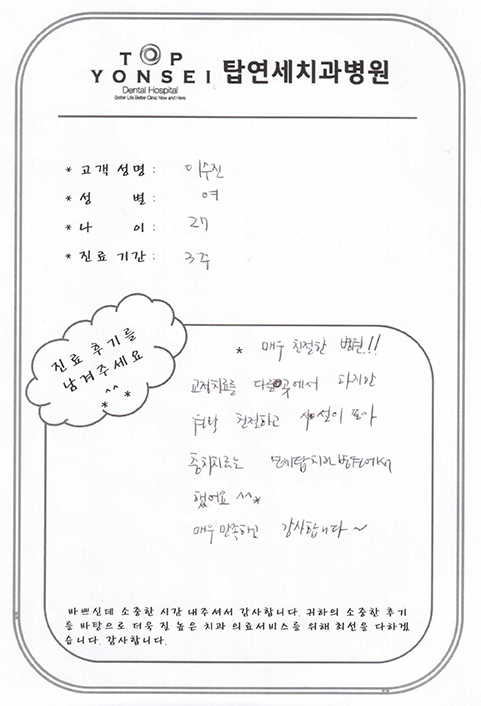 TOP
YONSEI 탑연세치과병원
Dental Hospital
Better Life Better Clinic Now and Here
* 고객 성명 : 이수진
* 성 별 : 여
* 나 이 : 27
* 진료 기간 : 3주
진료 후기를
남겨주세요
^^
* *
* 매우 친절한 병원!!
교정치료를 다른곳에서 하지만
워낙 친절하고 시설이 좋아
충치치료는 연세탑치과병원에서
했어요 ^^*
매우 만족하고 감사합니다~
바쁘신데 소중한 시간 내주셔서 감사합니다. 귀하의 소중한 후기
를 바탕으로 더욱 질 높은 치과 의료서비스를 위해 최선을 다하겠
습니다. 감사합니다.